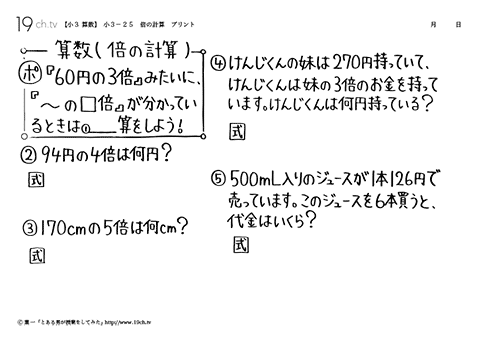 19ch.tv 【小3 算数】 小3－25 倍の計算 プリント 月 日
算数(倍の計算)
ポ『60円の3倍』みたいに、
『〜の□倍』が分かってい
るときは①＿＿算をしよう!
②94円の4倍は何円?
式
③170cmの5倍は何cm?
式
④けんじくんの妹は270円持っていて、
けんじくんは妹の3倍のお金を持って
います。けんじくんは何円持っている?
式
⑤500mL入りのジュースが1本126円で
売っています。このジュースを6本買うと、
代金はいくら?
式
Ⓒ葉一「とある男が授業をしてみた」http://www.19ch.tv